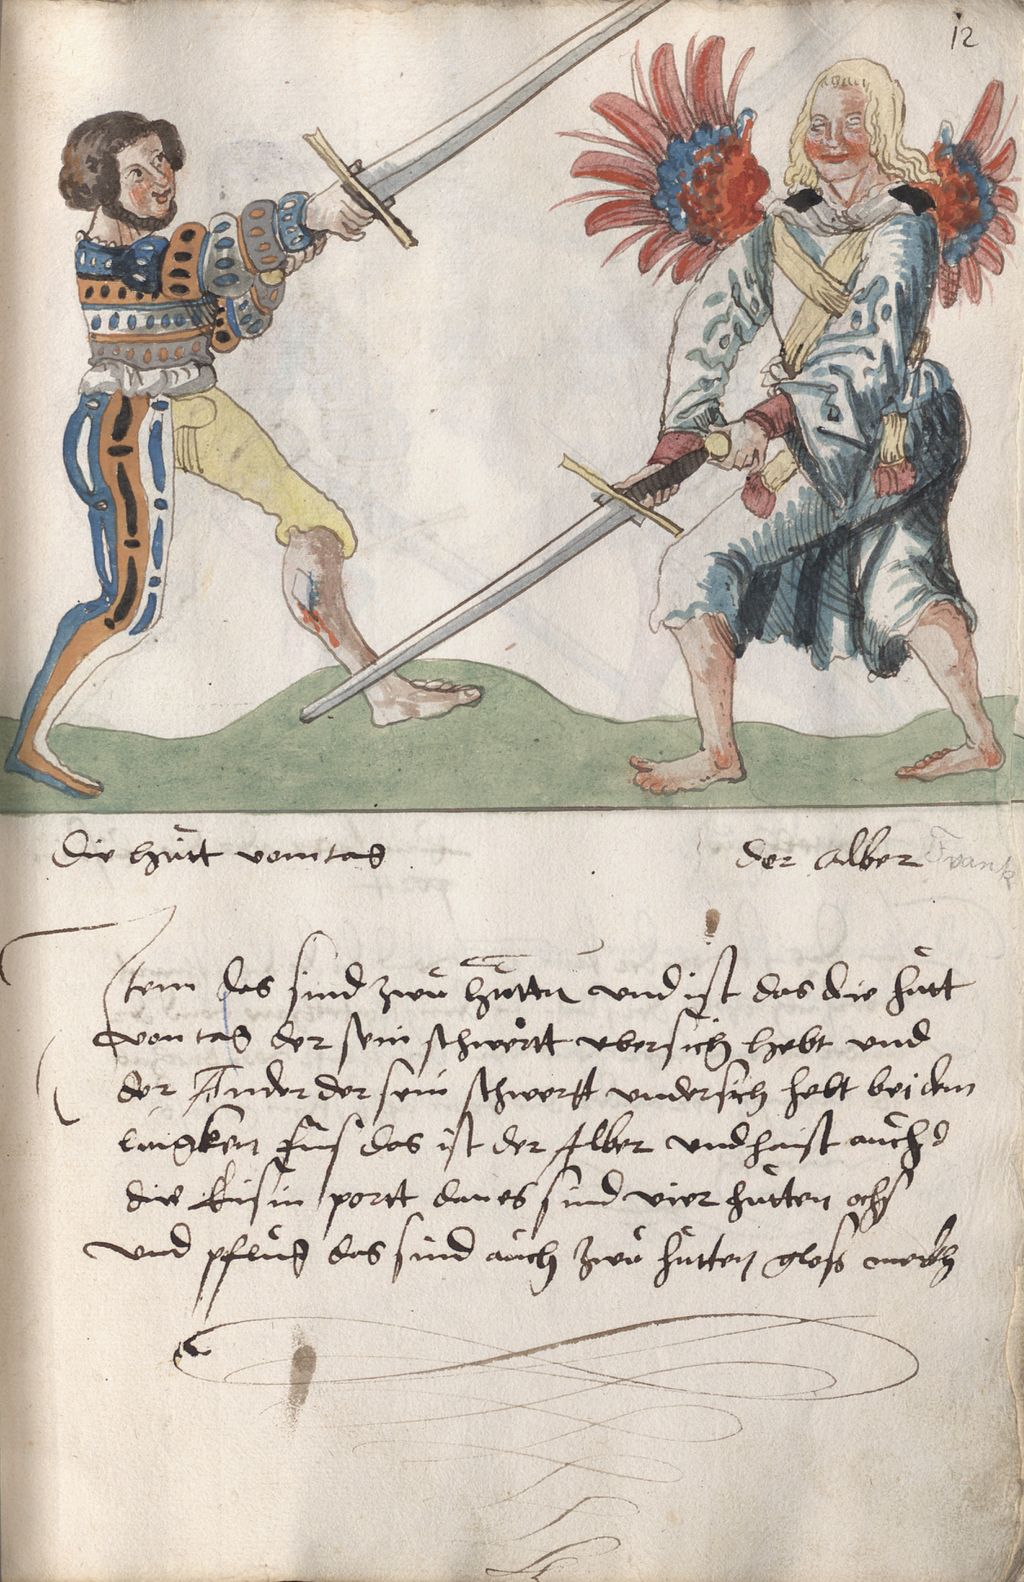 12
die hůtt vom tag
der alber
Item das sind zwů hůtten und ist das die hůtt
von tag der sein schwertt vbersich hebt vnd
der Ander der sein schwertt vndersich hebt bei dem
lingken fus das ist der Alber vnd haist aůch
die Eisin portt dan es sind vier hůtten ochs
vnd pflůg das sind aůch zwů hůtten gloss merkh